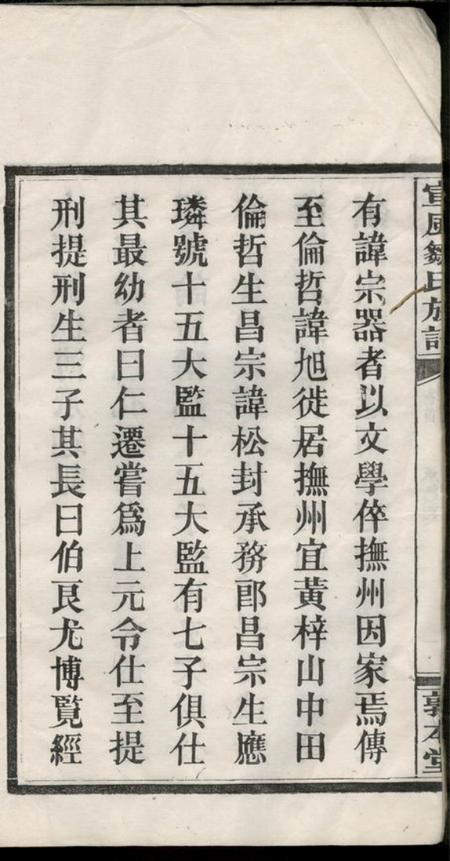 宜風鄒氏族譜
敦本堂
有諱宗器者以文學倅撫州因家焉傳
至倫哲諱旭徙居撫州宜黃梓山中田
倫哲生昌宗諱松封承務郎昌宗生應
璘號十五大監十五大監有七子俱仕
其最幼者曰仁遷嘗爲上元令仕至提
刑提刑生三子其長曰伯良尤博覽經